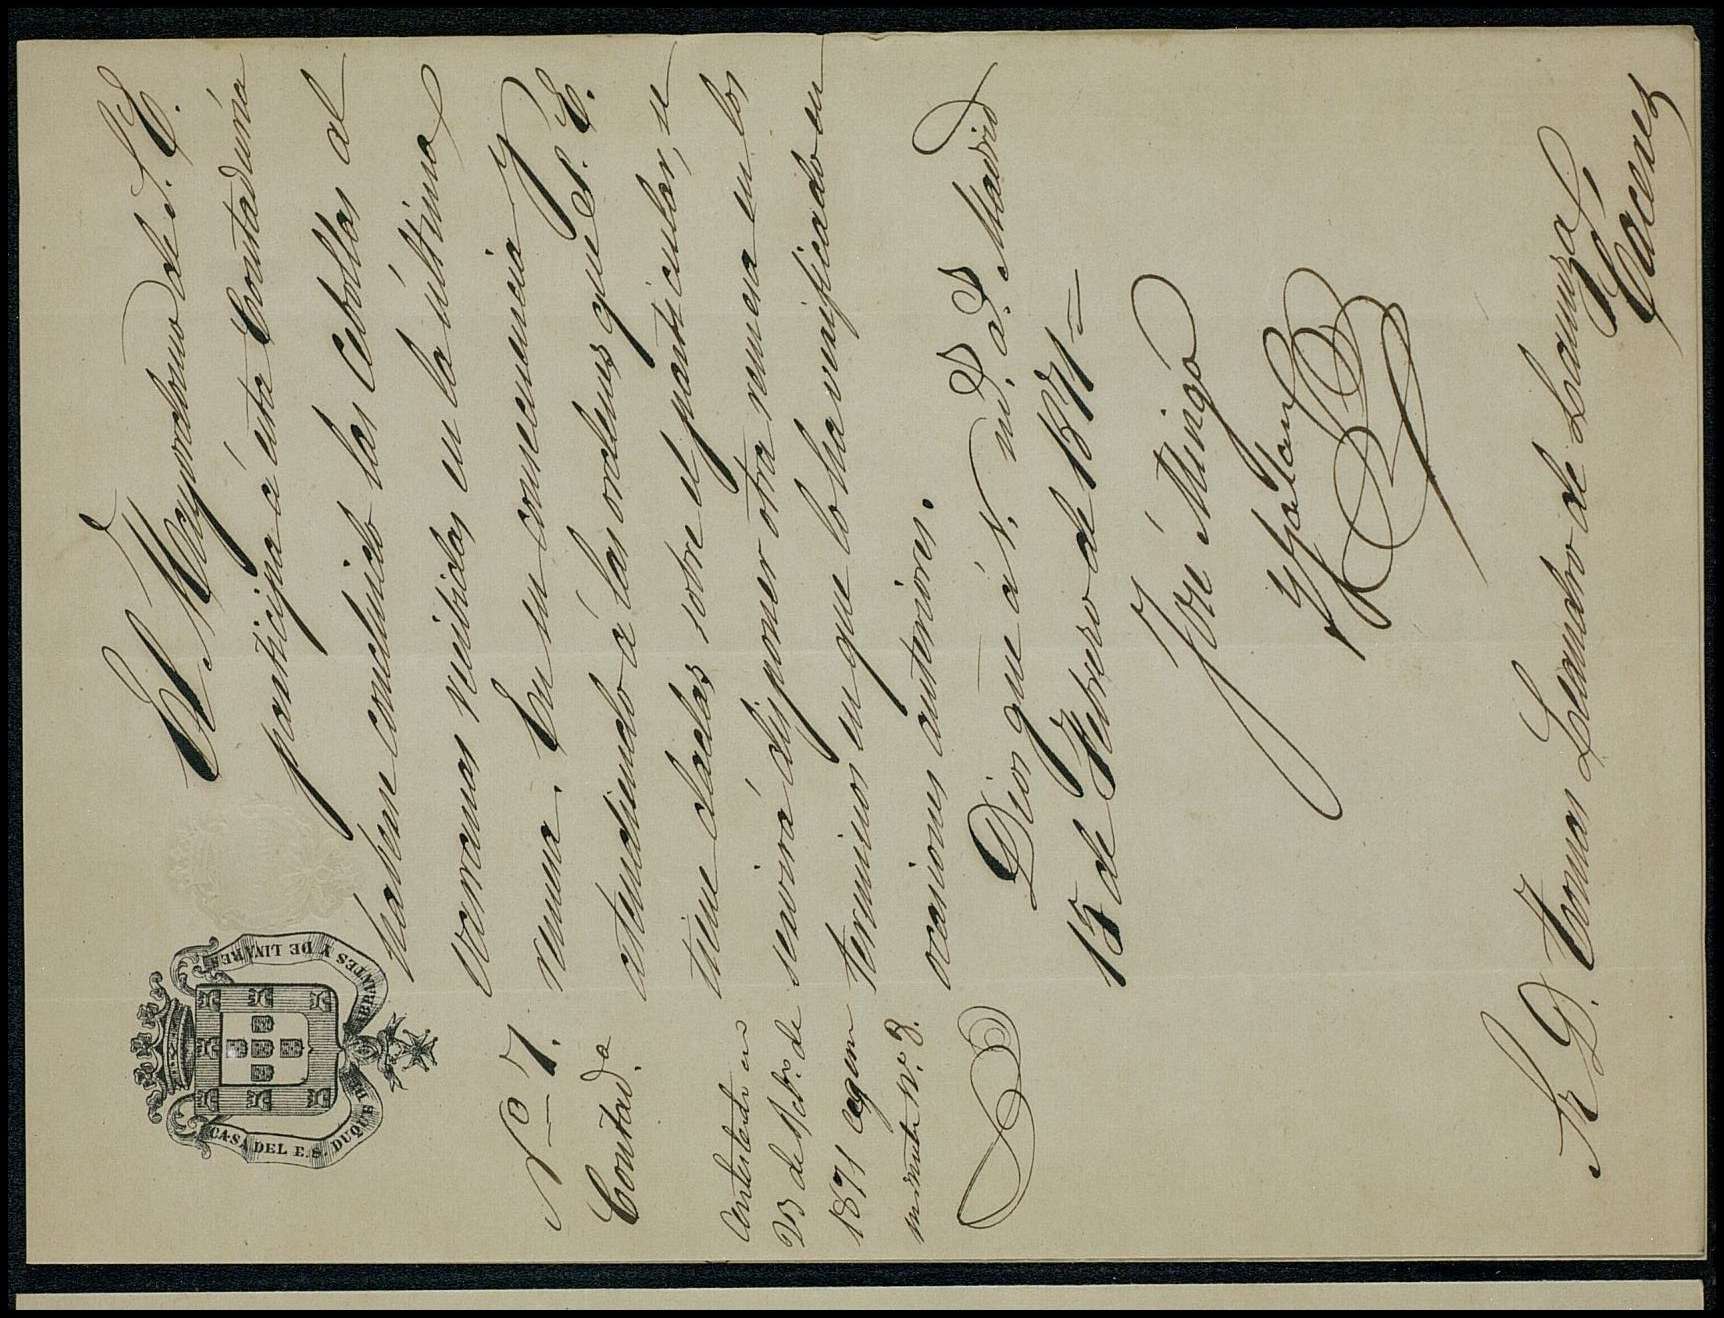 CASA DEL E. S. DUQUE DE ABRANTES Y DE LINARES
Nº 7.
Contad.ª
Contestado en
23 de Febº. de
1871 segun
minuta Nº. 8.
El Mayordomo de S. E.
participa á esta Contaduria
haberse concluido las cebollas al
barranas recibidas en la última
remesa. En su consecuencia y
atendiendo á las ordenes que S. E.
tiene dadas sobre el particular, se
servirá disponer otra remesa en los
terminos en que lo ha verificado en
ocasiones anteriores.
Dios gue á V. m.s a.s Madrid
15 de Febrero de 1871=
José Mingo
Sr. D. Tomas Leandro de Lauuza
Cáceres